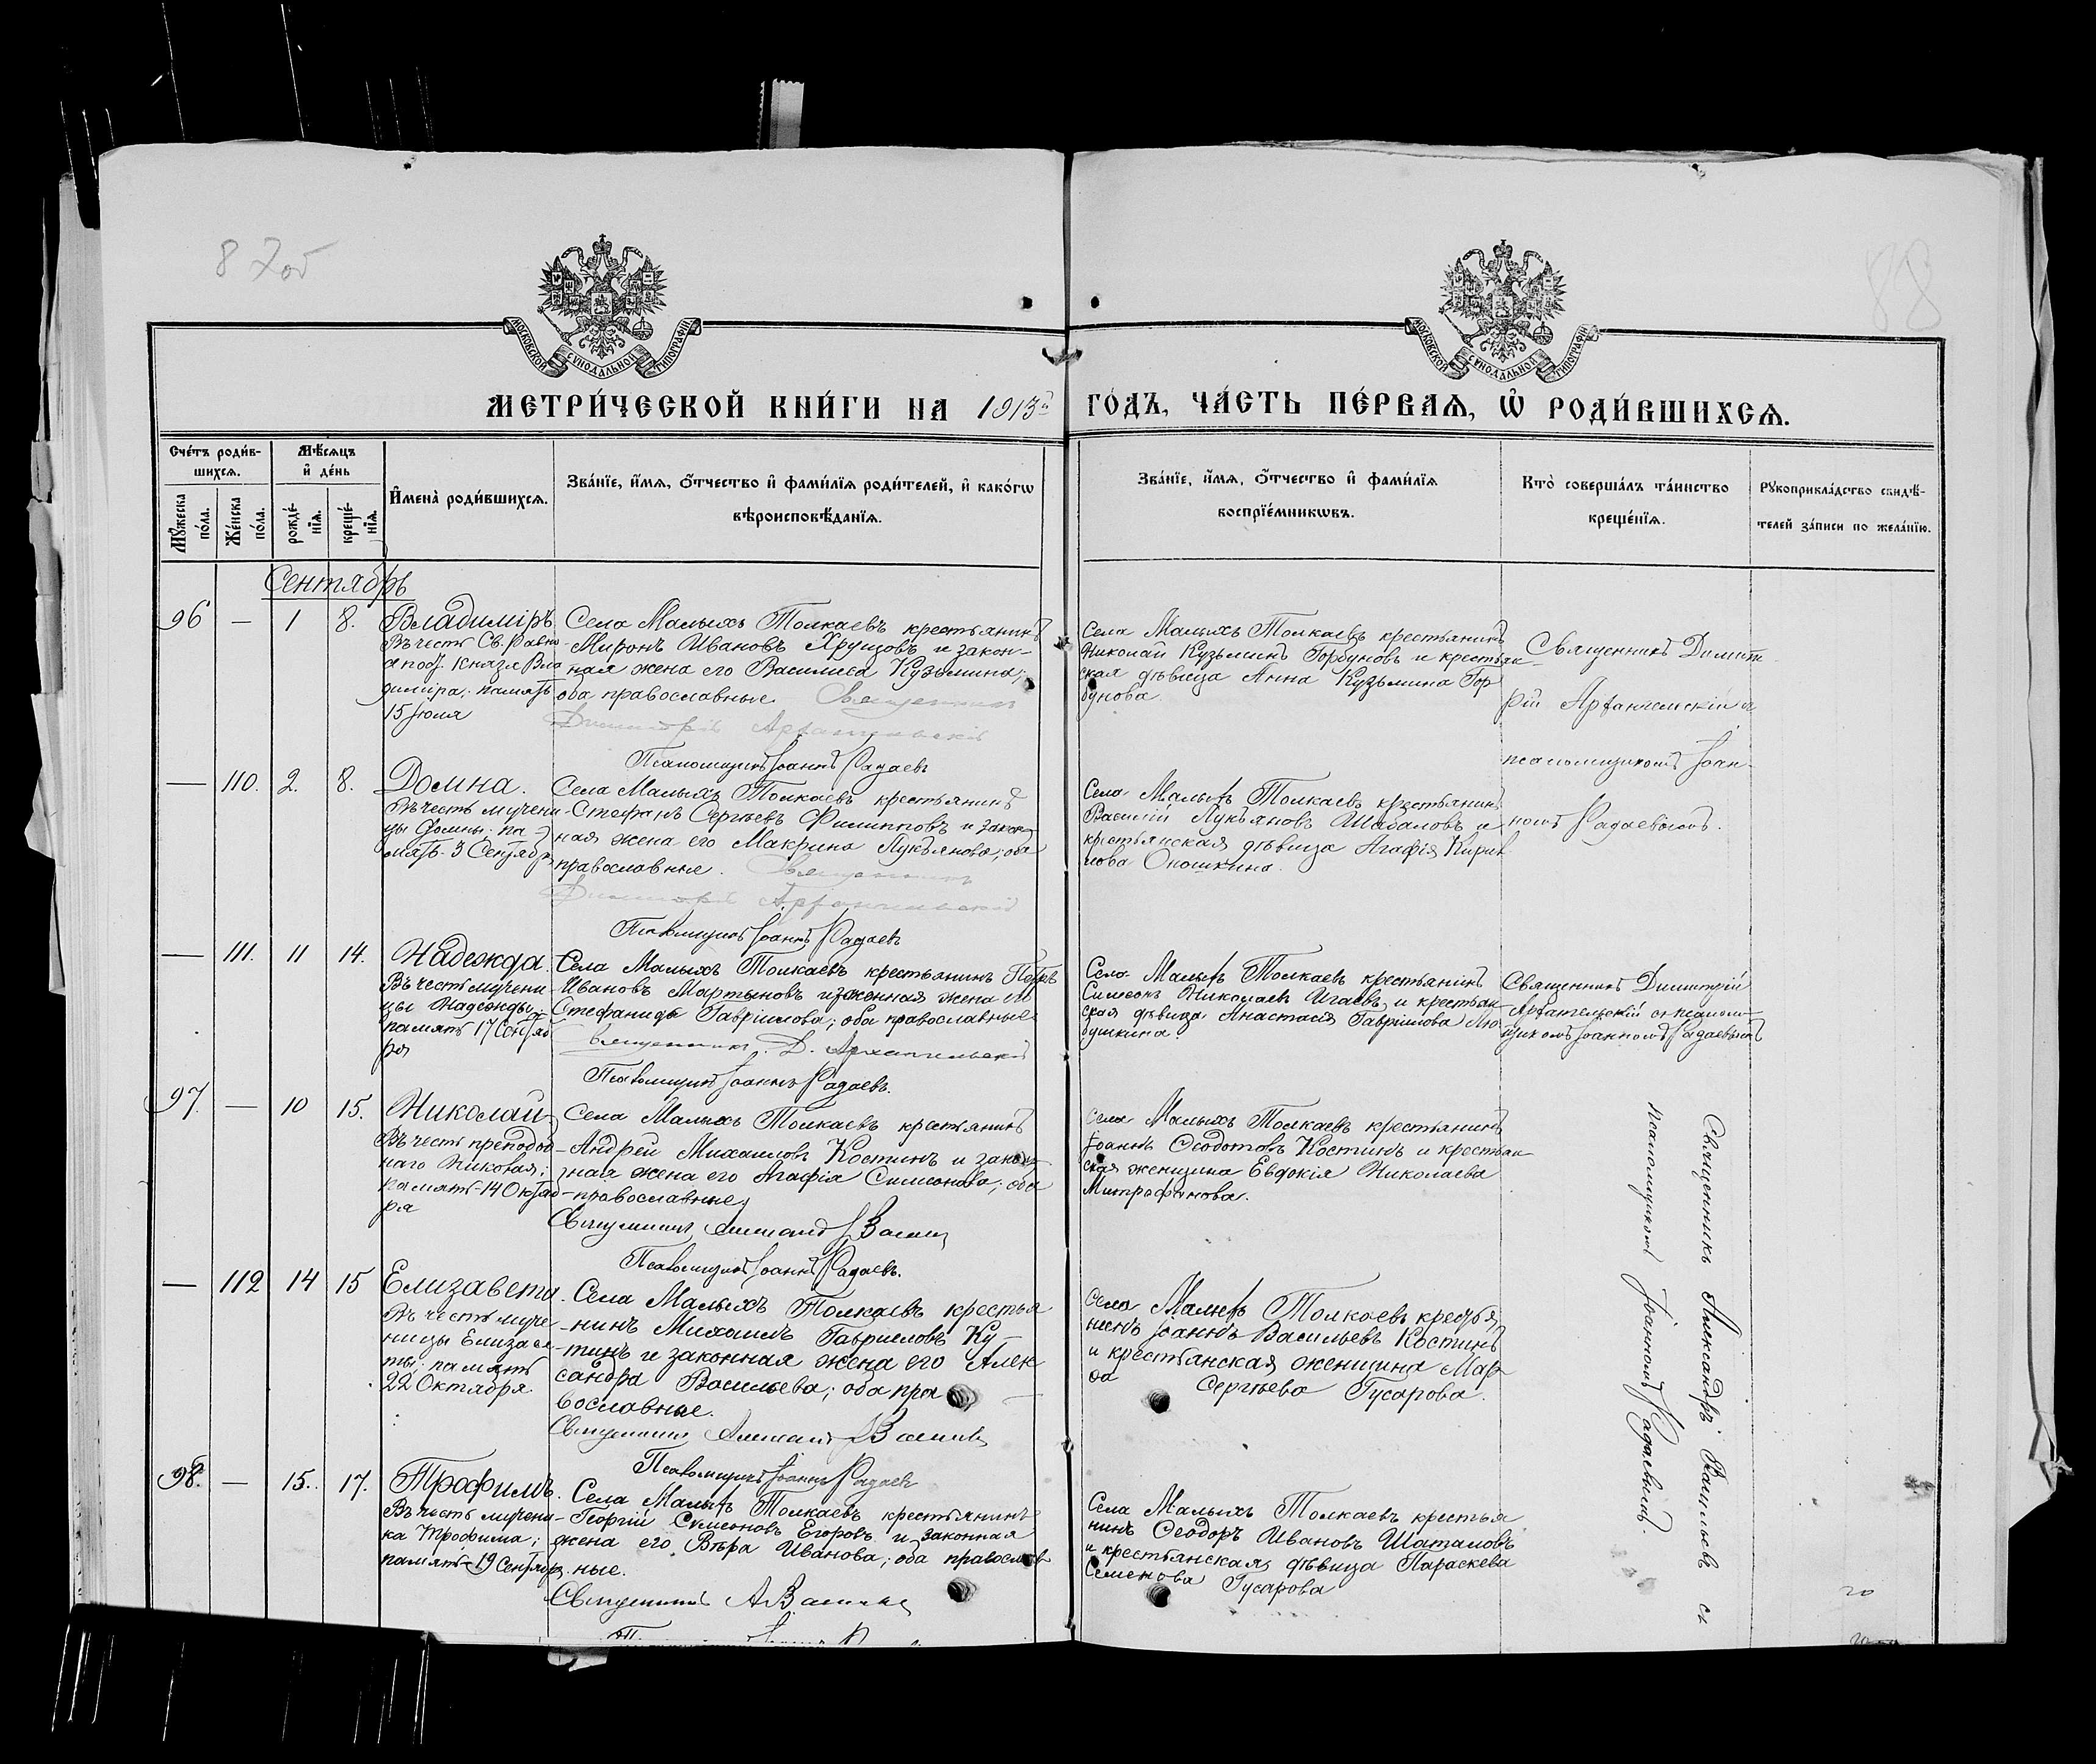 87об
88
МОСКОВСКОЙ СѴНОДАЛЬНОЙ ТИПОГРАФІИ
МОСКОВСКОЙ СѴНОДАЛЬНОЙ ТИПОГРАФІИ
МЕТРИ́ЧЕСКОЙ КНИ́ГИ НА 1913й ГО́ДЪ, ЧА́СТЬ ПЕ́РВАЯ, Ѡ҆ РОДИ́ВШИХСЯ.
Сче́тъ роди́в-
шихся.
Мѣ́сяцъ
и҆ де́нь
Мꙋ́жеска
по́ла.
Же́нска
по́ла.
рожде́-
нїя.
креще́-
нїя.
И҆мена̀ роди́вшихся.
Зва́нїе, и҆́мя, ѻ҆́тчество и҆ фами́лїя роди́телей, и҆ како́гѡ
вѣроисповѣ́данїя.
Зва́нїе, и҆́мя, ѻ҆́тчество и҆ фами́лїя
воспрїе́мникѡвъ.
Кто̀ соверша́лъ та́инство
креще́нїя.
Рꙋкоприкла́дство свидѣ́-
телей за́писи по жела́нїю.
Сентябрь
96 — 1 8.
Владиміръ.
Въ честь Св. Равно
апос. Князя Вла
диміра; память
15 Іюля
Села Малыхъ Толкаевъ крестьянинъ
Миронъ Ивановъ Хрущовъ и закон-
ная жена его Василиса Кузьмина;
оба православные. Священникъ
Димитрій Архангельскій
Псаломщикъ Іоаннъ Радаевъ
Села Малыхъ Толкаевъ крестьянинъ
Николай Кузьминъ Горбуновъ и крестьян-
ская дѣвица Анна Кузьмина Гор
бунова.
Священникъ Димит
рій Архангельскій съ
псаломщикомъ Іоан-
номъ Радаевымъ.
— 110. 2. 8.
Домна.
Въ честь мучени
цы Домны; па-
мять 3 Сентябр.
Села Малыхъ Толкаевъ крестьянинъ
Стефанъ Сергѣевъ Филипповъ и закон
ная жена его Макрина Лукьянова; оба
православные. Священникъ
Димитрій Архангельскій
Псаломщикъ Іоаннъ Радаевъ
Села Малыхъ Толкаевъ крестьянинъ
Василій Лукьяновъ Шабаловъ и
крестьянская дѣвица Агафія Кирил
лова Оношкина.
— 111. 11 14.
Надежда.
Въ честь мучени
цы Надежды;
память 17 Сентяб
ря
Села Малыхъ Толкаевъ крестьянинъ Петръ
Ивановъ Мартыновъ и законная жена его
Стефанида Гавріилова; оба православные
Священникъ Д. Архангельскій
Псаломщикъ Іоаннъ Радаевъ.
Села Малыхъ Толкаевъ крестьянинъ
Симеонъ Николаевъ Игаевъ и крестьян
ская дѣвица Анастасія Гавріилова
Священникъ Димитрій
Архангельскій съ псалом-
щикомъ Іоанномъ Радаевымъ
97. — 10 15.
Николай
Въ честь преподоб
наго Николая;
память 14 Октяб
ря
Села Малыхъ Толкаевъ крестьянинъ
Андрей Михаиловъ Костинъ и закон
ная жена его Агафія Симеонова; оба
православные
Священникъ Александръ Васильевъ
Псаломщикъ Іоаннъ Радаевъ.
Села Малыхъ Толкаевъ крестьянинъ
Іоаннъ Ѳеодотовъ Костинъ и крестьян
ская женщина Евдокія Николаева
Митрофанова.
Священникъ Александръ Васильевъ съ
псаломщикомъ Іоанномъ Радаевымъ.
— 112 14 15
Елизавета
Въ честь муче-
ницы Елизаве
ты; память
22 Октября
Села Малыхъ Толкаевъ крестья
нинъ Михаилъ Гавриловъ Ку-
тинъ и законная жена его Алек
сандра Васильева; оба пра
вославные.
Священникъ Александръ Васильевъ
Псаломщикъ Іоаннъ Радаевъ
Села Малыхъ Толкаевъ крестья
нинъ Іоаннъ Васильевъ Костинъ
и крестьянская женщина Мар
ѳа Сергѣева Гусарова.
98. — 15. 17.
Трофимъ.
Въ честь мучени
ка Трофима;
память 19 Сентябр.
Села Малыхъ Толкаевъ крестьянинъ
Георгій Симеоновъ Егоровъ и законная
жена его Вѣра Иванова; оба православ
ные.
Священникъ А Васильевъ
Села Малыхъ Толкаевъ крестья
нинъ Ѳеодоръ Ивановъ Шаталовъ
и крестьянская дѣвица Параскева
Семенова Гусарова
20